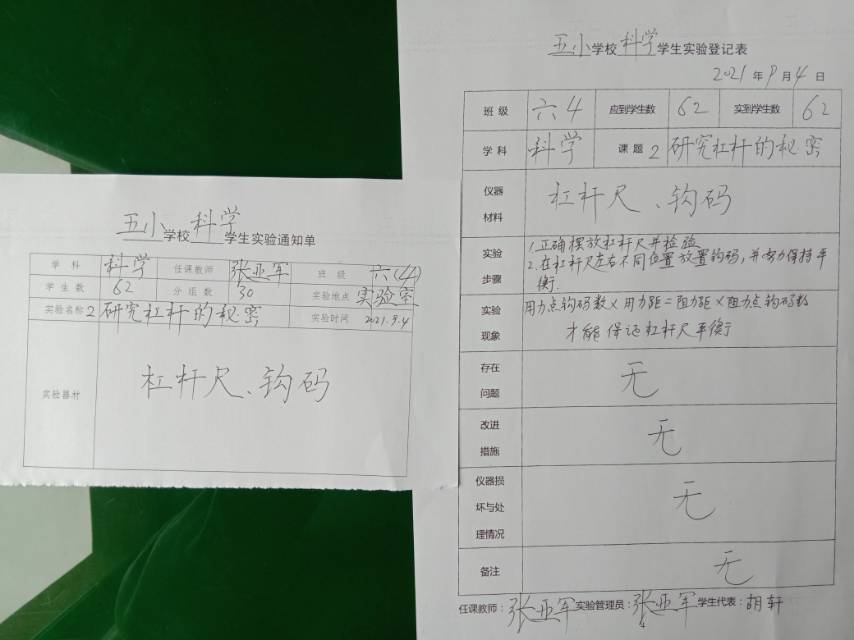 五小学校科学学生实验通知单
学科 科学 任课教师 张亚军 班级 六(4)
学生数 62 分组数 30 实验地点 实验室
实验名称 2 研究杠杆的秘密 实验时间 2021.9.4
实验器材 杠杆尺、钩码
五小学校科学学生实验登记表
2021年9月4日
班级 六4 应到学生数 62 实到学生数 62
学科 科学 课题 2 研究杠杆的秘密
仪器材料 杠杆尺、钩码
实验步骤 1.正确摆放杠杆尺并检验
2.在杠杆尺左右不同位置放置钩码,并努力保持平
衡.
实验现象 用力点钩码数×用力距=阻力距×阻力点钩码数
才能保证杠杆尺平衡
存在问题 无
改进措施 无
仪器损坏与处理情况 无
备注 无
任课教师:张亚军 实验管理员:张亚军 学生代表:胡轩